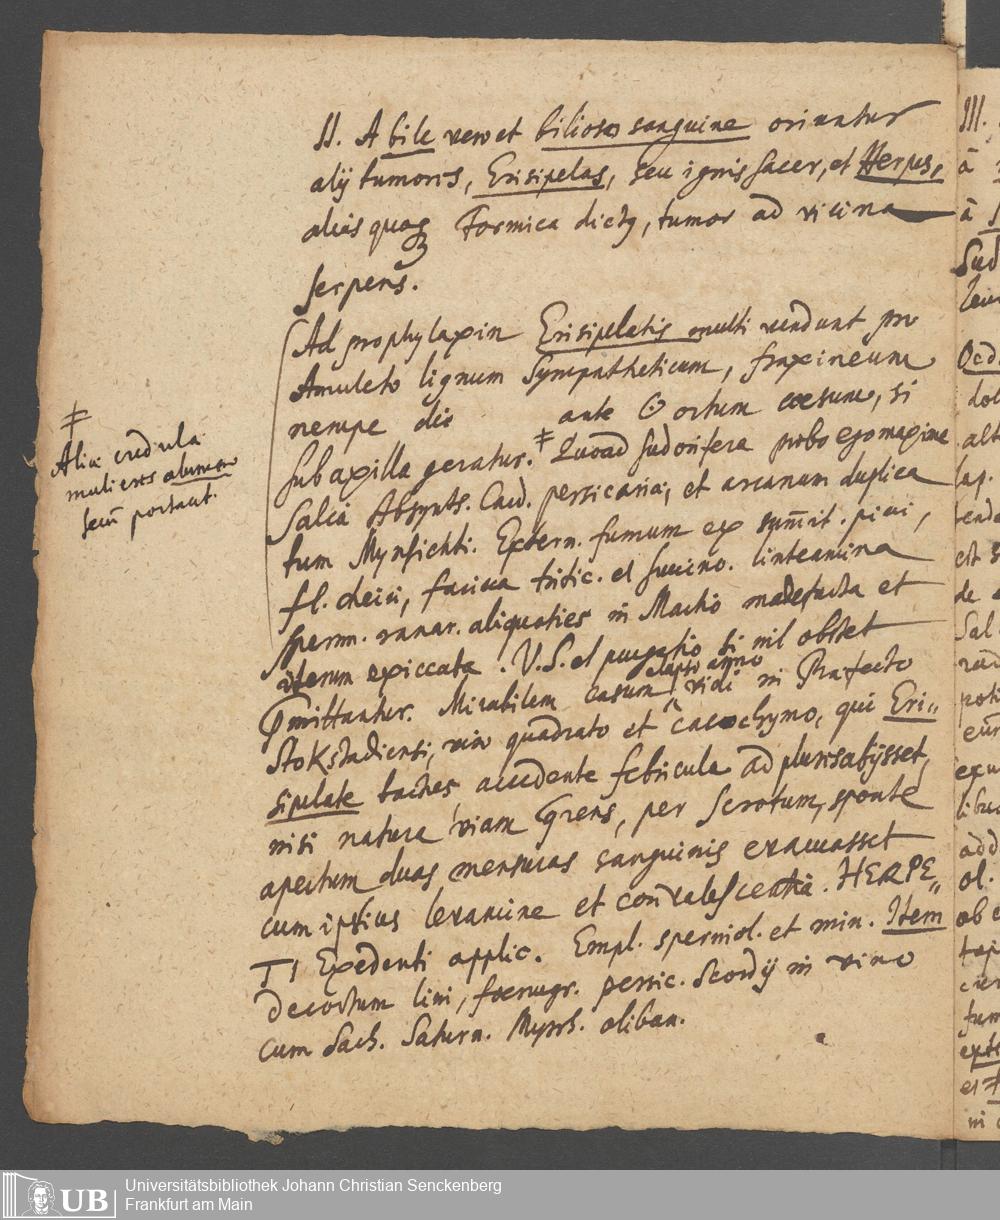 II. A bile vero et bilioso sanguine oriuntur
alij tumores, Erisipelas, seu ignis sacer, et Herpes,
aliis quoq Formica dicta, tumor ad vicina
serpens.
Ad prophylaxin Erisipelatis multi vendunt pro
Amuleto lignum Sympatheticum, fraxineum
nempe die ante ☉ ortum caesum, si
sub axilla geratur. ‡ Quoad sudorifera probo ego maxime
salia Absynth. Card. persicariae, et arcanum duplica
tum Mynsichti. Extern. fumum ex sum̄it. pini,
fl. cheiri, farina tritic. et succino. linteamina
sperm. ranar. aliquoties in Martio madefacta et
iterum exiccata. V.S. et purgatio si nil obstet
mittantur. Mirabilem casum elapso anno vidi in Praefecto
Stokstadiensi, viro quadrato et cacochymo, qui Eri=
sipelate accedente febricula ad plures abijsset,
nisi natura viam quaerens, per scrotum, sponte
apertum duas mensuras sanguinis evacuasset
cum ipsius levamine et convalescentia. HERPE=
TI Exedenti applic. Empl. sperniol. et min. Item
decoctum lini, foenugr. persic. Scordij in vino
cum Sach. Saturn. Myrrh. oliban.
‡
Aliae credulae
mulieres alumen
secū portant.
III.
Universitätsbibliothek Johann Christian Senckenberg
Frankfurt am Main
UB